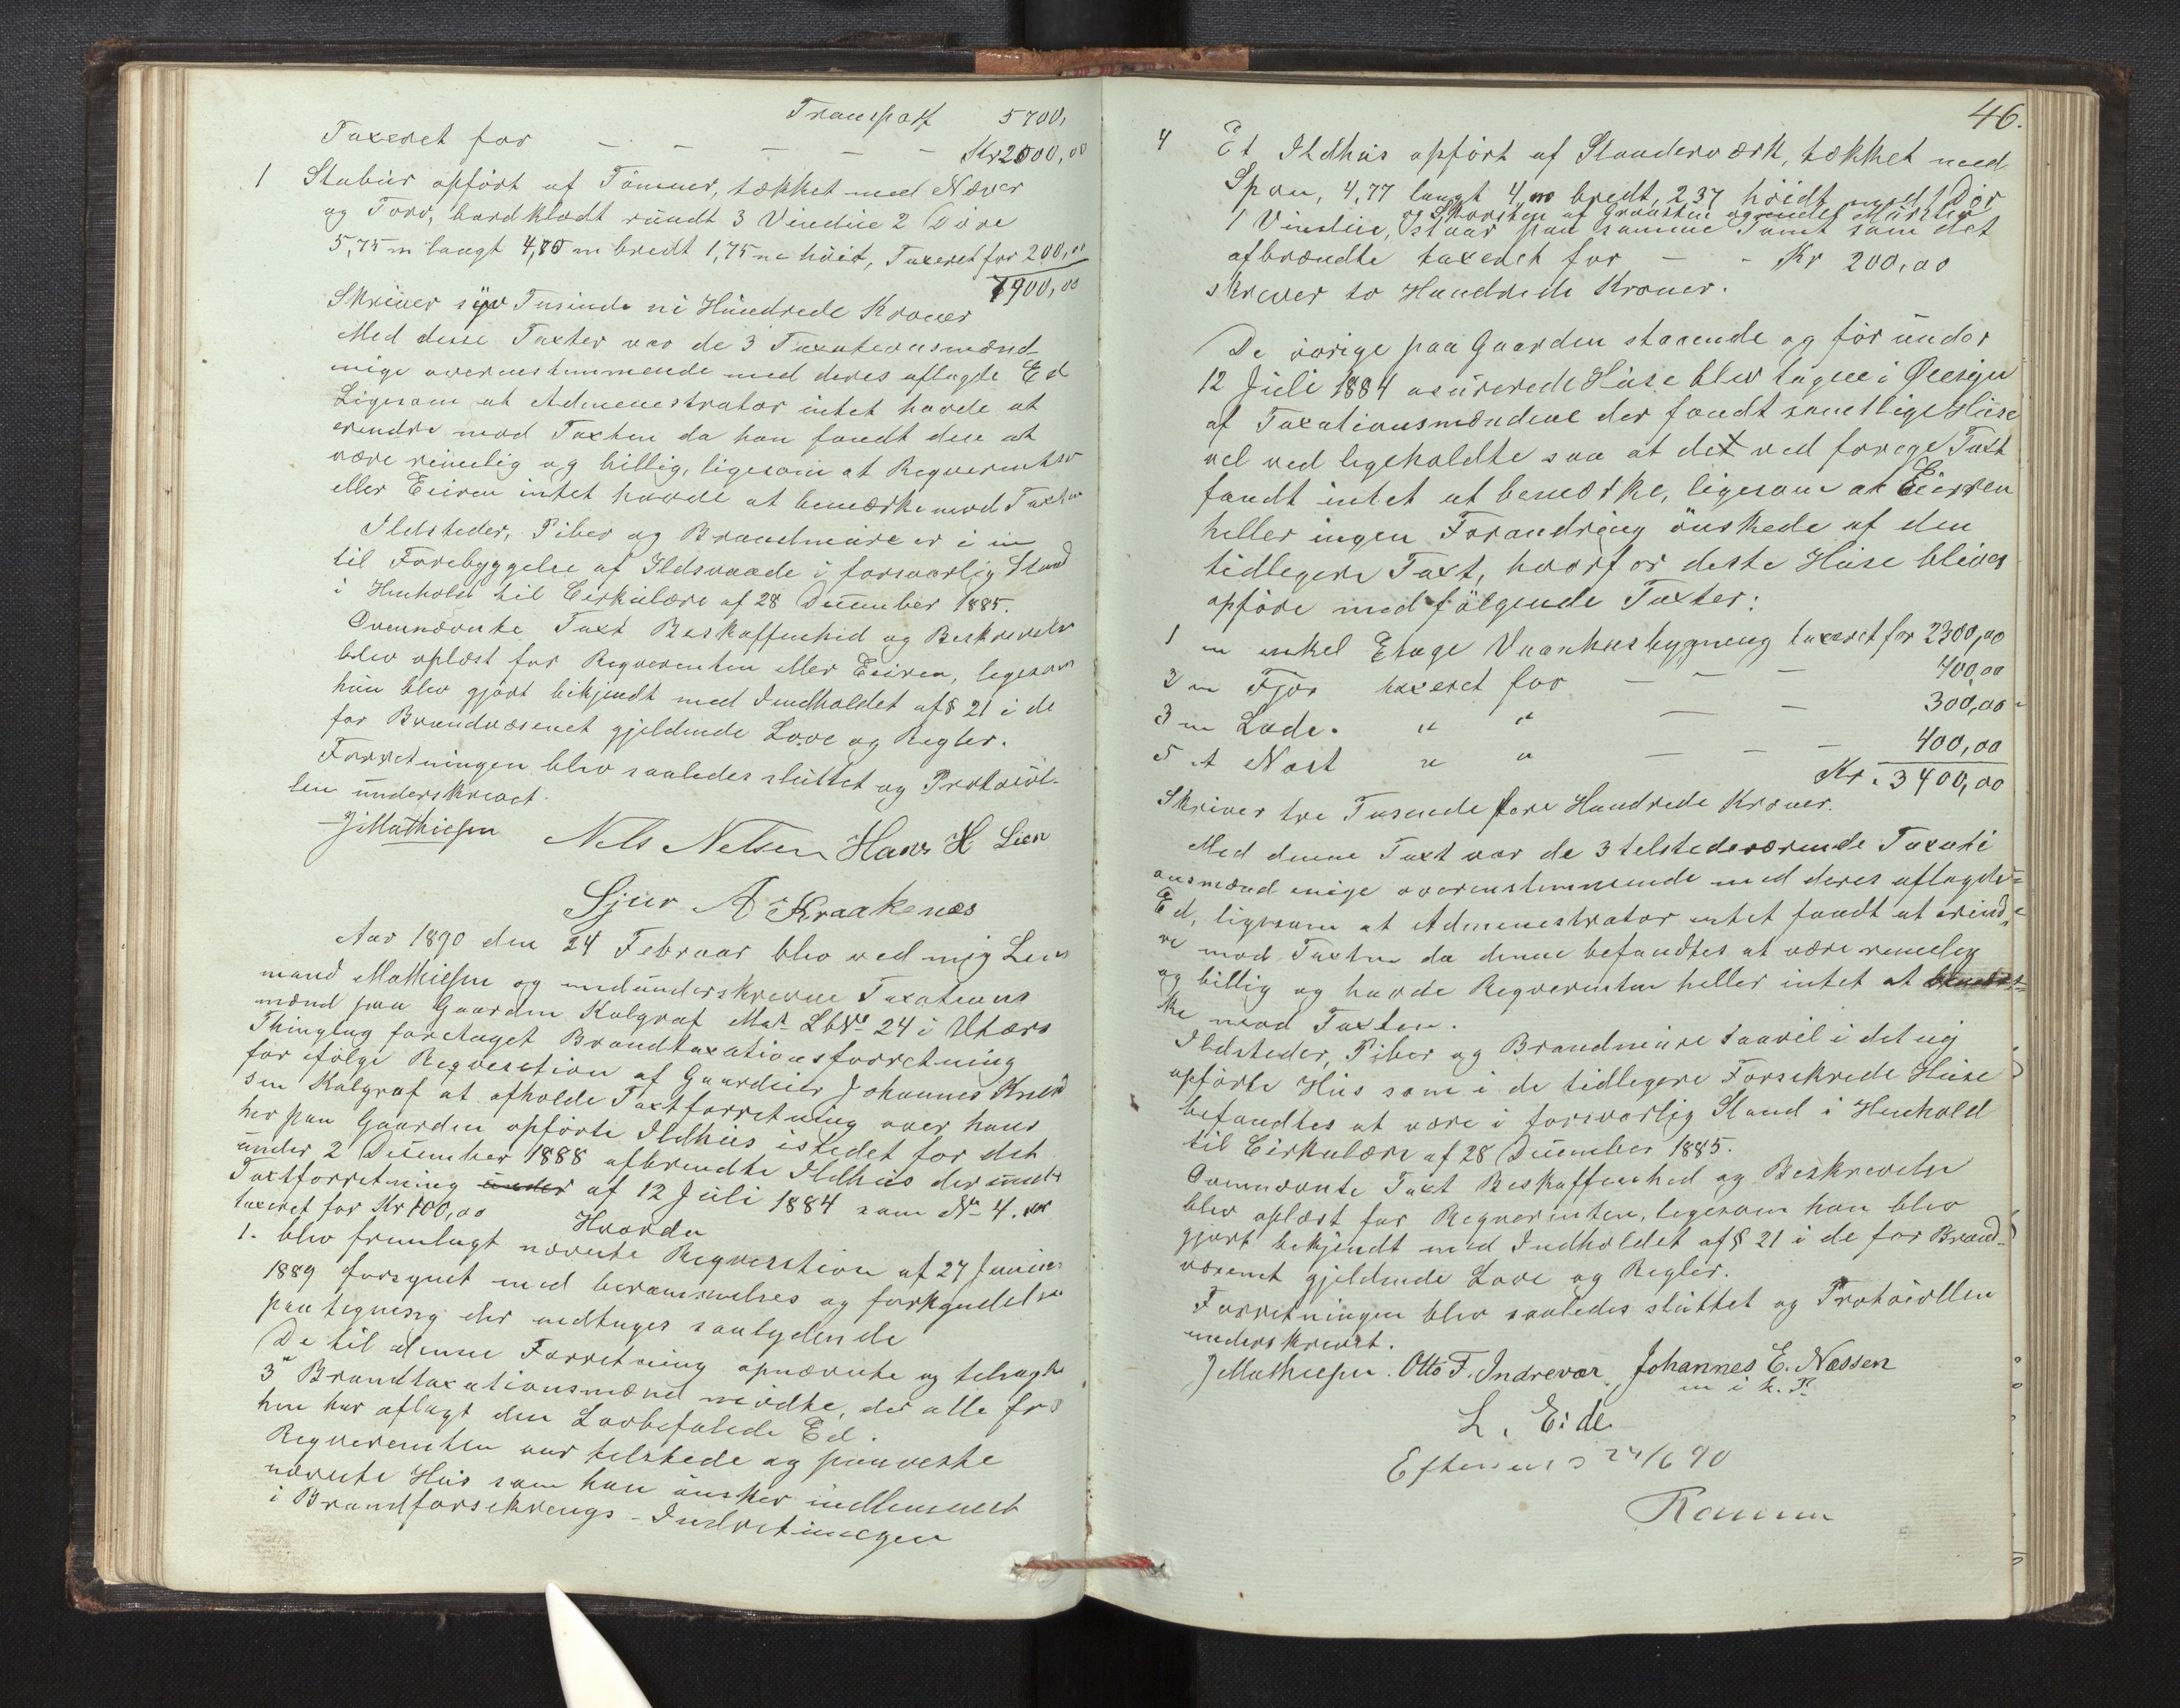 Transport 5700,
Taxeret for - - - - - Kr 2000,00
1 Stabur opført af Tømmer, tækket med Næver
og Torv, bordklædt rundt 3 Vinduer 2 Døre
5,75 m langt 4,70 m bredt 1,75 m høit, Taxeret for 200,00
7900,00
Skriver syv Tusinde ni Hundrede Kroner
Med disse Taxter var de 3 Taxationsmænd
enige overenstemmende med deres aflagte Ed
Ligesom at Administrator intet havde at
erindre mod Taxten da han fandt den at
være rimelig og billig, ligesom at Reqverenten
eller Eieren intet havde at bemærke mod Taxten
Ildsteder, Piber og Brandmure er i en
til Forebyggelse af Ildsvaade i forsvarlig Stand
i Henhold til Cirkulære af 28 December 1885.
Ovennævnte Taxt Beskaffenhed og Beskrivelse
blev oplæst for Reqverenten eller Eieren, ligesom
hun blev gjort bekjendt med Indholdet af § 21 i de
for Brandvæsenet gjeldende Love og Regler.
Forretningen blev saaledes sluttet og Protokol-
len underskrevet.
J Mathiesen Nels Nelsen Hans H Lien
Sjur A Kraakenes
Aar 1890 den 24 Februar blev ved mig Lens
mand Mathiesen og medunderskrevne Taxations
mænd paa Gaarden Kalgraf Mat. LbNo 24 i Utvær
Thinglag foretaget Brandtaxationsforretning
for ifølge Reqvisition af Gaardeier Johannes Knud
sen Kalgraf at afholde Taxtforretning over hans
her paa Gaarden opførte Ildhus istedet for det
under 2 December 1888 afbrendte Ildhus der under
Taxtforretning under af 12 Juli 1884 som No 4. var
taxeret for Kr 100,00 Hvorda
1. blev fremlagt nævnte Reqvisition af 27 Juni
1889 forsynet med berammelses og forkyndelses
paategning der vedtages saalydende
De til denne Forretning opnævnte og tilsagte
3de Brandtaxationsmænd mødte, der alle før
hen har aflagt den Lovbefalede Ed.
Reqverenten var tilstede og paaviste
nævnte Hus som han ønsker indlemmet
i Brandforsikrings-Indretningen
46.
4 Et Ildhus opført af Stauderværk, tækket med
Spon, 4,77 langt 4,00 bredt, 2,37 høidt med 1 Dør
og Skorsten af Graasten og Mursten
1 Vindue, staar paa samme Tomt som det
afbrændte taxeret for - - Kr 200,00
skriver to Hundrede Kroner.
De øvrige paa Gaarden staaende og før under
12 Juli 1884 asurerede Huse blev tagne i Øiesyn
af Taxationsmændene der fandt samtlige Huse
vel ved ligeholdte saa at det ved forrige Taxt
fandt intet at bemærke, ligesom at Eieren
heller ingen Forandring ønskede af den
tidligere Taxt, hvorfor disse Huse blives
opføre med følgende Taxter:
1 en enkel Etage Vaanhusbygning taxeret for 2300,00
2 en Fjøs taxeret for - - - 400,00
3 en Lade. " " - - 300,00
5 et Nøst " " - - - 400,00
Kr. 3400,00
Skriver tre Tusende fire Hundrede Kroner.
Med denne Taxt var de 3 tilstedeværende Taxati
onsmænd enige overenstemmende med deres aflagde
Ed, ligesom at Administrator intet fandt at erind
re mod Taxten da denne befandtes at være rimelig
og billig og havde Reqverenten heller intet at bemær
ke mod Taxten.
Ildsteder, Piber og Brandmure saavel i det ny
opførte Hus som i de tidligere Forsikrede Huse
befandtes at være i forsvarlig Stand i Henhold
til Cirkulære af 28 December 1885.
Ovennævnte Taxt Beskaffenhed og Beskrivelse
blev oplæst for Reqverenten, ligesom han blev
gjort bekjendt med Indholdet af § 21 i de for Brand-
væsenet gjeldende Love og Regler.
Forretningen blev saaledes sluttet og Protokollen
underskrevet.
J Mathiesen. Otto F. Indrevær. Johannes E. Nessen
m i k. P.
L. Eide
Efterseet 24/6 90